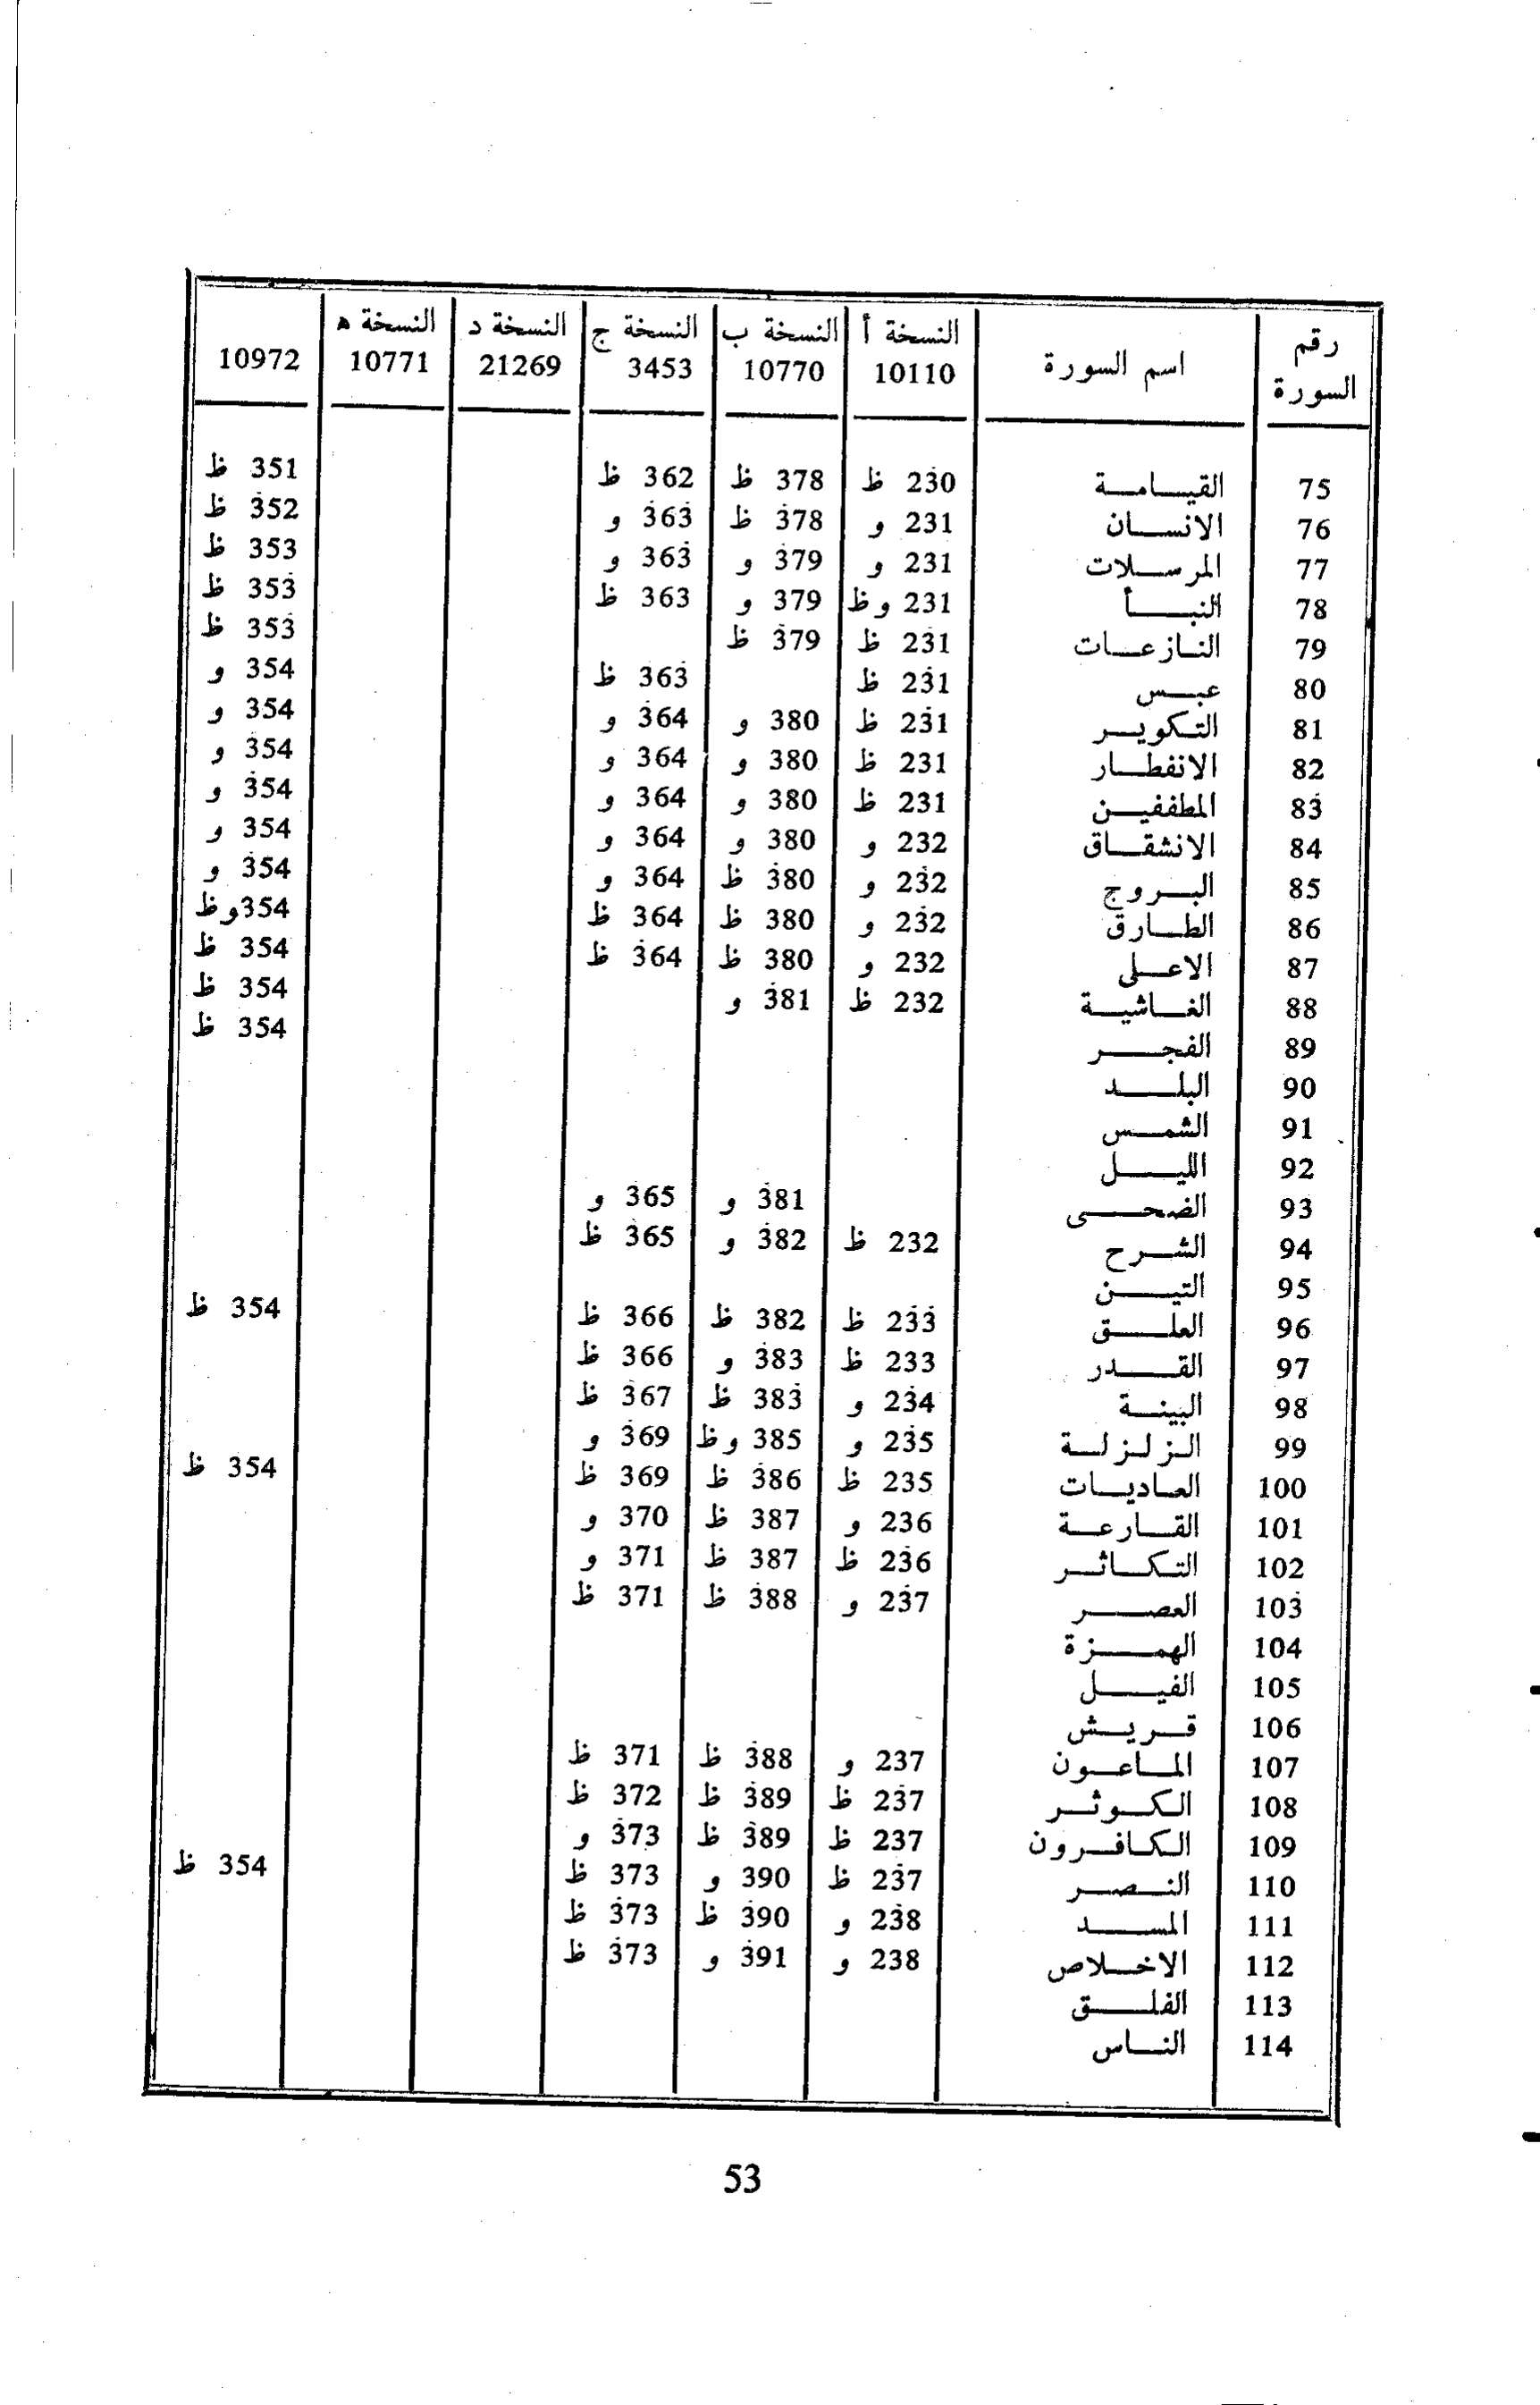 رقم السورة اسم السورة النسخة أ 10110 النسخة ب 10770 النسخة ج 3453 النسخة د 21269 النسخة ه 10771 10972
75 القيامة 230 ظ 378 ظ 362 ظ 351 ظ
76 الانسان 231 و 378 ظ 363 و 352 ظ
77 المرسلات 231 و 379 و 363 و 353 ظ
78 النبأ 231 وظ 379 و 363 ظ 353 ظ
79 النازعات 231 ظ 379 ظ 353 ظ
80 عبس 231 ظ 363 ظ 354 و
81 التكوير 231 ظ 380 و 364 و 354 و
82 الانفطار 231 ظ 380 و 364 و 354 و
83 المطففين 231 ظ 380 و 364 و 354 و
84 الانشقاق 232 و 380 و 364 و 354 و
85 البروج 232 و 380 ظ 364 و 354 و
86 الطارق 232 و 380 ظ 364 ظ 354 وظ
87 الاعلى 232 و 380 ظ 364 ظ 354 ظ
88 الغاشية 232 ظ 381 و 354 ظ
89 الفجر 354 ظ
90 البلد
91 الشمس
92 الليل
93 الضحى 381 و 365 و
94 الشرح 232 ظ 382 و 365 ظ
95 التين
96 العلق 233 ظ 382 ظ 366 ظ 354 ظ
97 القدر 233 ظ 383 و 366 ظ
98 البينة 234 و 383 ظ 367 ظ
99 الزلزلة 235 و 385 وظ 369 و
100 العاديات 235 ظ 386 ظ 369 ظ 354 ظ
101 القارعة 236 و 387 ظ 370 و
102 التكاثر 236 ظ 387 ظ 371 و
103 العصر 237 و 388 ظ 371 ظ
104 الهمزة
105 الفيل
106 قريش
107 الماعون 237 و 388 ظ 371 ظ
108 الكوثر 237 ظ 389 ظ 372 ظ
109 الكافرون 237 ظ 389 ظ 373 و
110 النصر 237 ظ 390 و 373 ظ 354 ظ
111 المسد 238 و 390 ظ 373 ظ
112 الاخلاص 238 و 391 و 373 ظ
113 الفلق
114 الناس
53